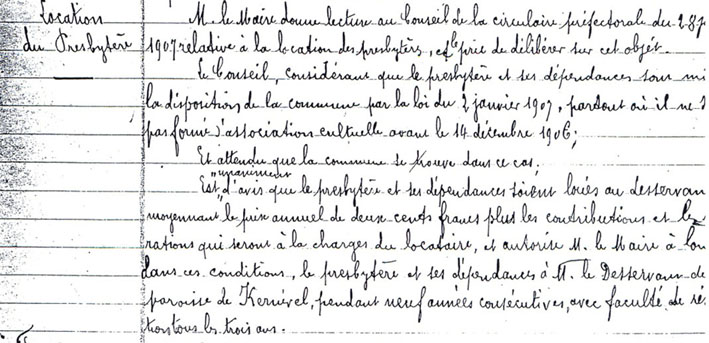 Location
du Presbytère
M. le Maire donne lecture au Conseil de la circulaire préfectorale du 28
1907 relative à la location des presbytères, et le prie de délibérer sur cet objet.
Le Conseil, considérant que le presbytère et ses dépendances sont mi
la disposition de la commune par la loi du 2 janvier 1907, partout où il ne s
pas formé d'association cultuelle avant le 14 décembre 1906;
Et attendu que la commune se trouve dans ce cas;
unanimement
Est d'avis que le presbytère et ses dépendances soient loués au desservan
moyennant le prix annuel de deux cents francs plus les contributions et les
rations qui seront à la charges du locataire, et autorise M. le Maire à lou
dans ces conditions, le presbytère et ses dépendances à M. le Desservant de
paroisse de Kernével, pendant neuf années consécutives, avec faculté de rés
tion tous les trois ans.